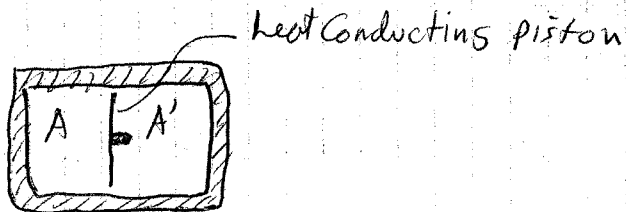 heat Conducting piston
A A'